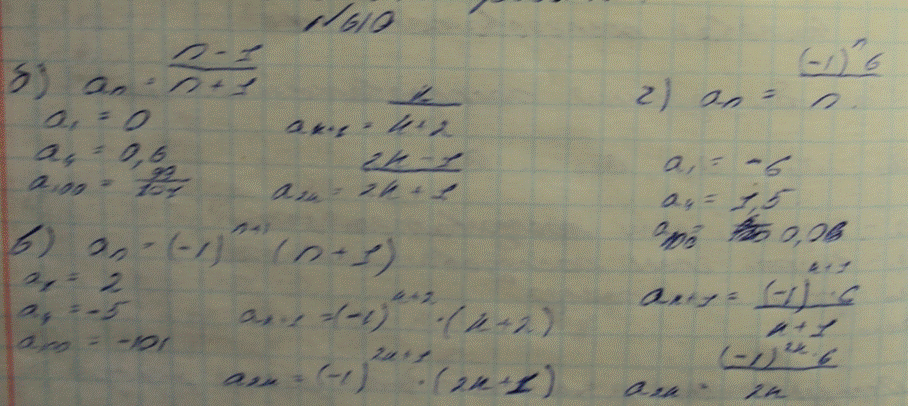 №610
б) aₙ = (n-1)/(n+1)
a₁ = 0
a₄ = 0,6
a₁₀₀ = 99/101
aₖ₊₁ = k/(k+2)
a₂ₖ = (2k-1)/(2k+1)
в) aₙ = (-1)ⁿ⁺¹ (n+1)
a₁ = 2
a₄ = -5
a₁₀₀ = -101
aₖ₊₁ = (-1)ᵏ⁺² · (k+2)
a₂ₖ = (-1)²ᵏ⁺¹ · (2k+1)
г) aₙ = (-1)ⁿ 6/n
a₁ = -6
a₄ = 1,5
a₁₀₀ = 0,06
aₖ₊₁ = (-1)ᵏ⁺¹ · 6/(k+1)
a₂ₖ = (-1)²ᵏ · 6/2k